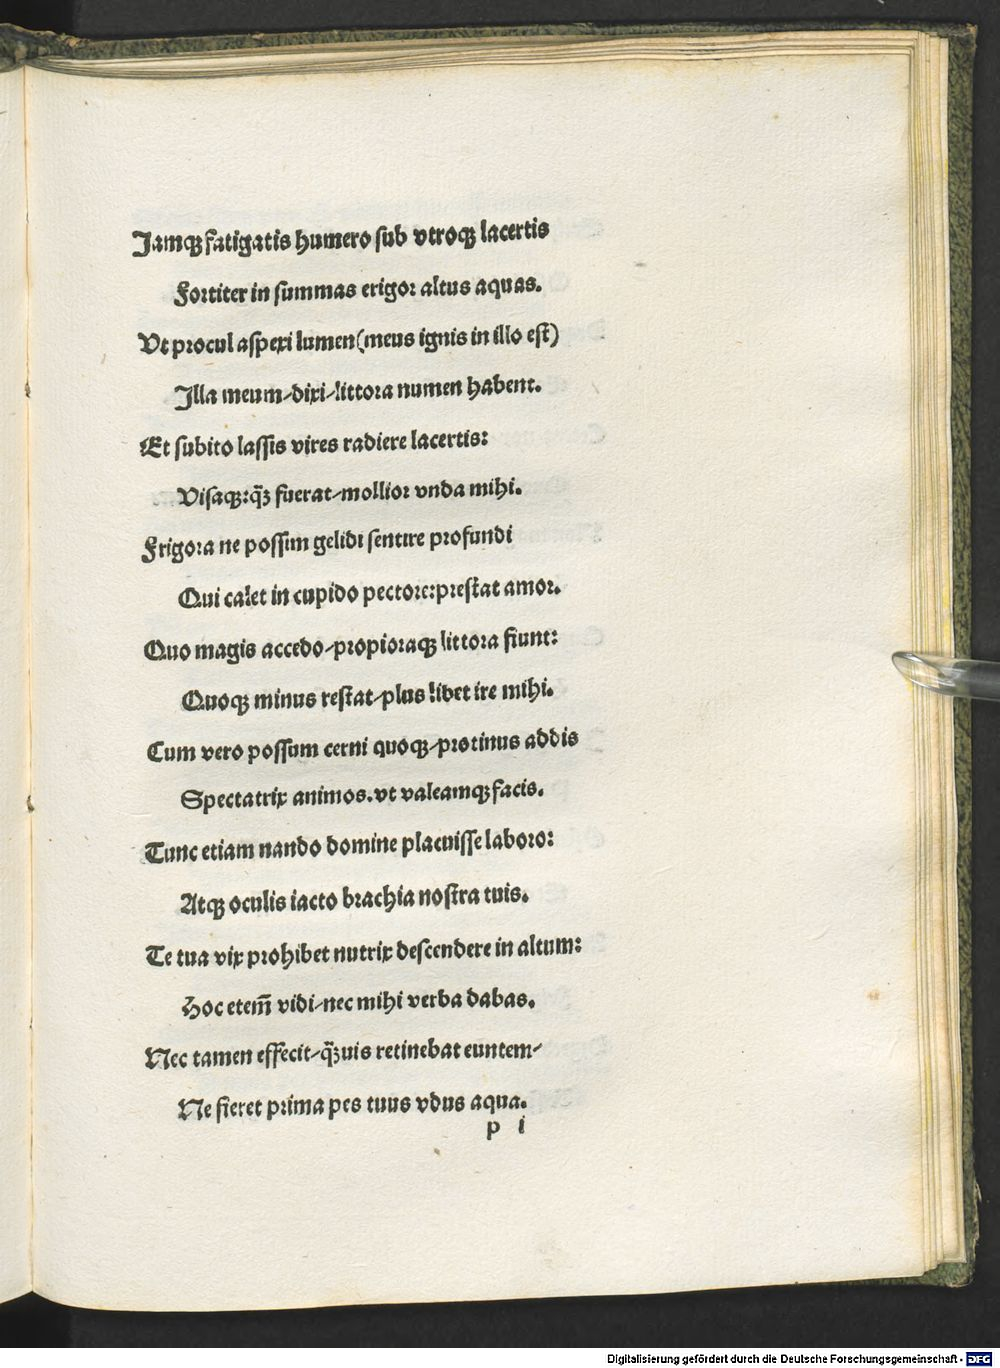 Jamqꝫ fatigatis humero sub vtroqꝫ lacertis
Fortiter in summas erigor altus aquas.
Vt procul aspexi lumen (meus ignis in illo est)
Illa meum/dixi/littora numen habent.
Et subito lassis vires radiere lacertis:
Visaqꝫ:q̄ꝫ fuerat/mollior vnda mihi.
Frigora ne possim gelidi sentire profundi
Qui calet in cupido pectore:prestat amor.
Quo magis accedo/propioraqꝫ littora fiunt:
Quoqꝫ minus restat/plus libet ire mihi.
Cum vero possum cerni quoqꝫ/protinus addis
Spectatrix animos.vt valeamqꝫ facis.
Tunc etiam nando domine placuisse laboro:
Atqꝫ oculis iacto brachia nostra tuis.
Te tua vix prohibet nutrix descendere in altum:
Hoc etem̄ vidi/nec mihi verba dabas.
Nec tamen effecit/q̄ꝫuis retinebat euntem/
Ne fieret prima pes tuus vdus aqua.
p i
Digitalisierung gefördert durch die Deutsche Forschungsgemeinschaft - DFG